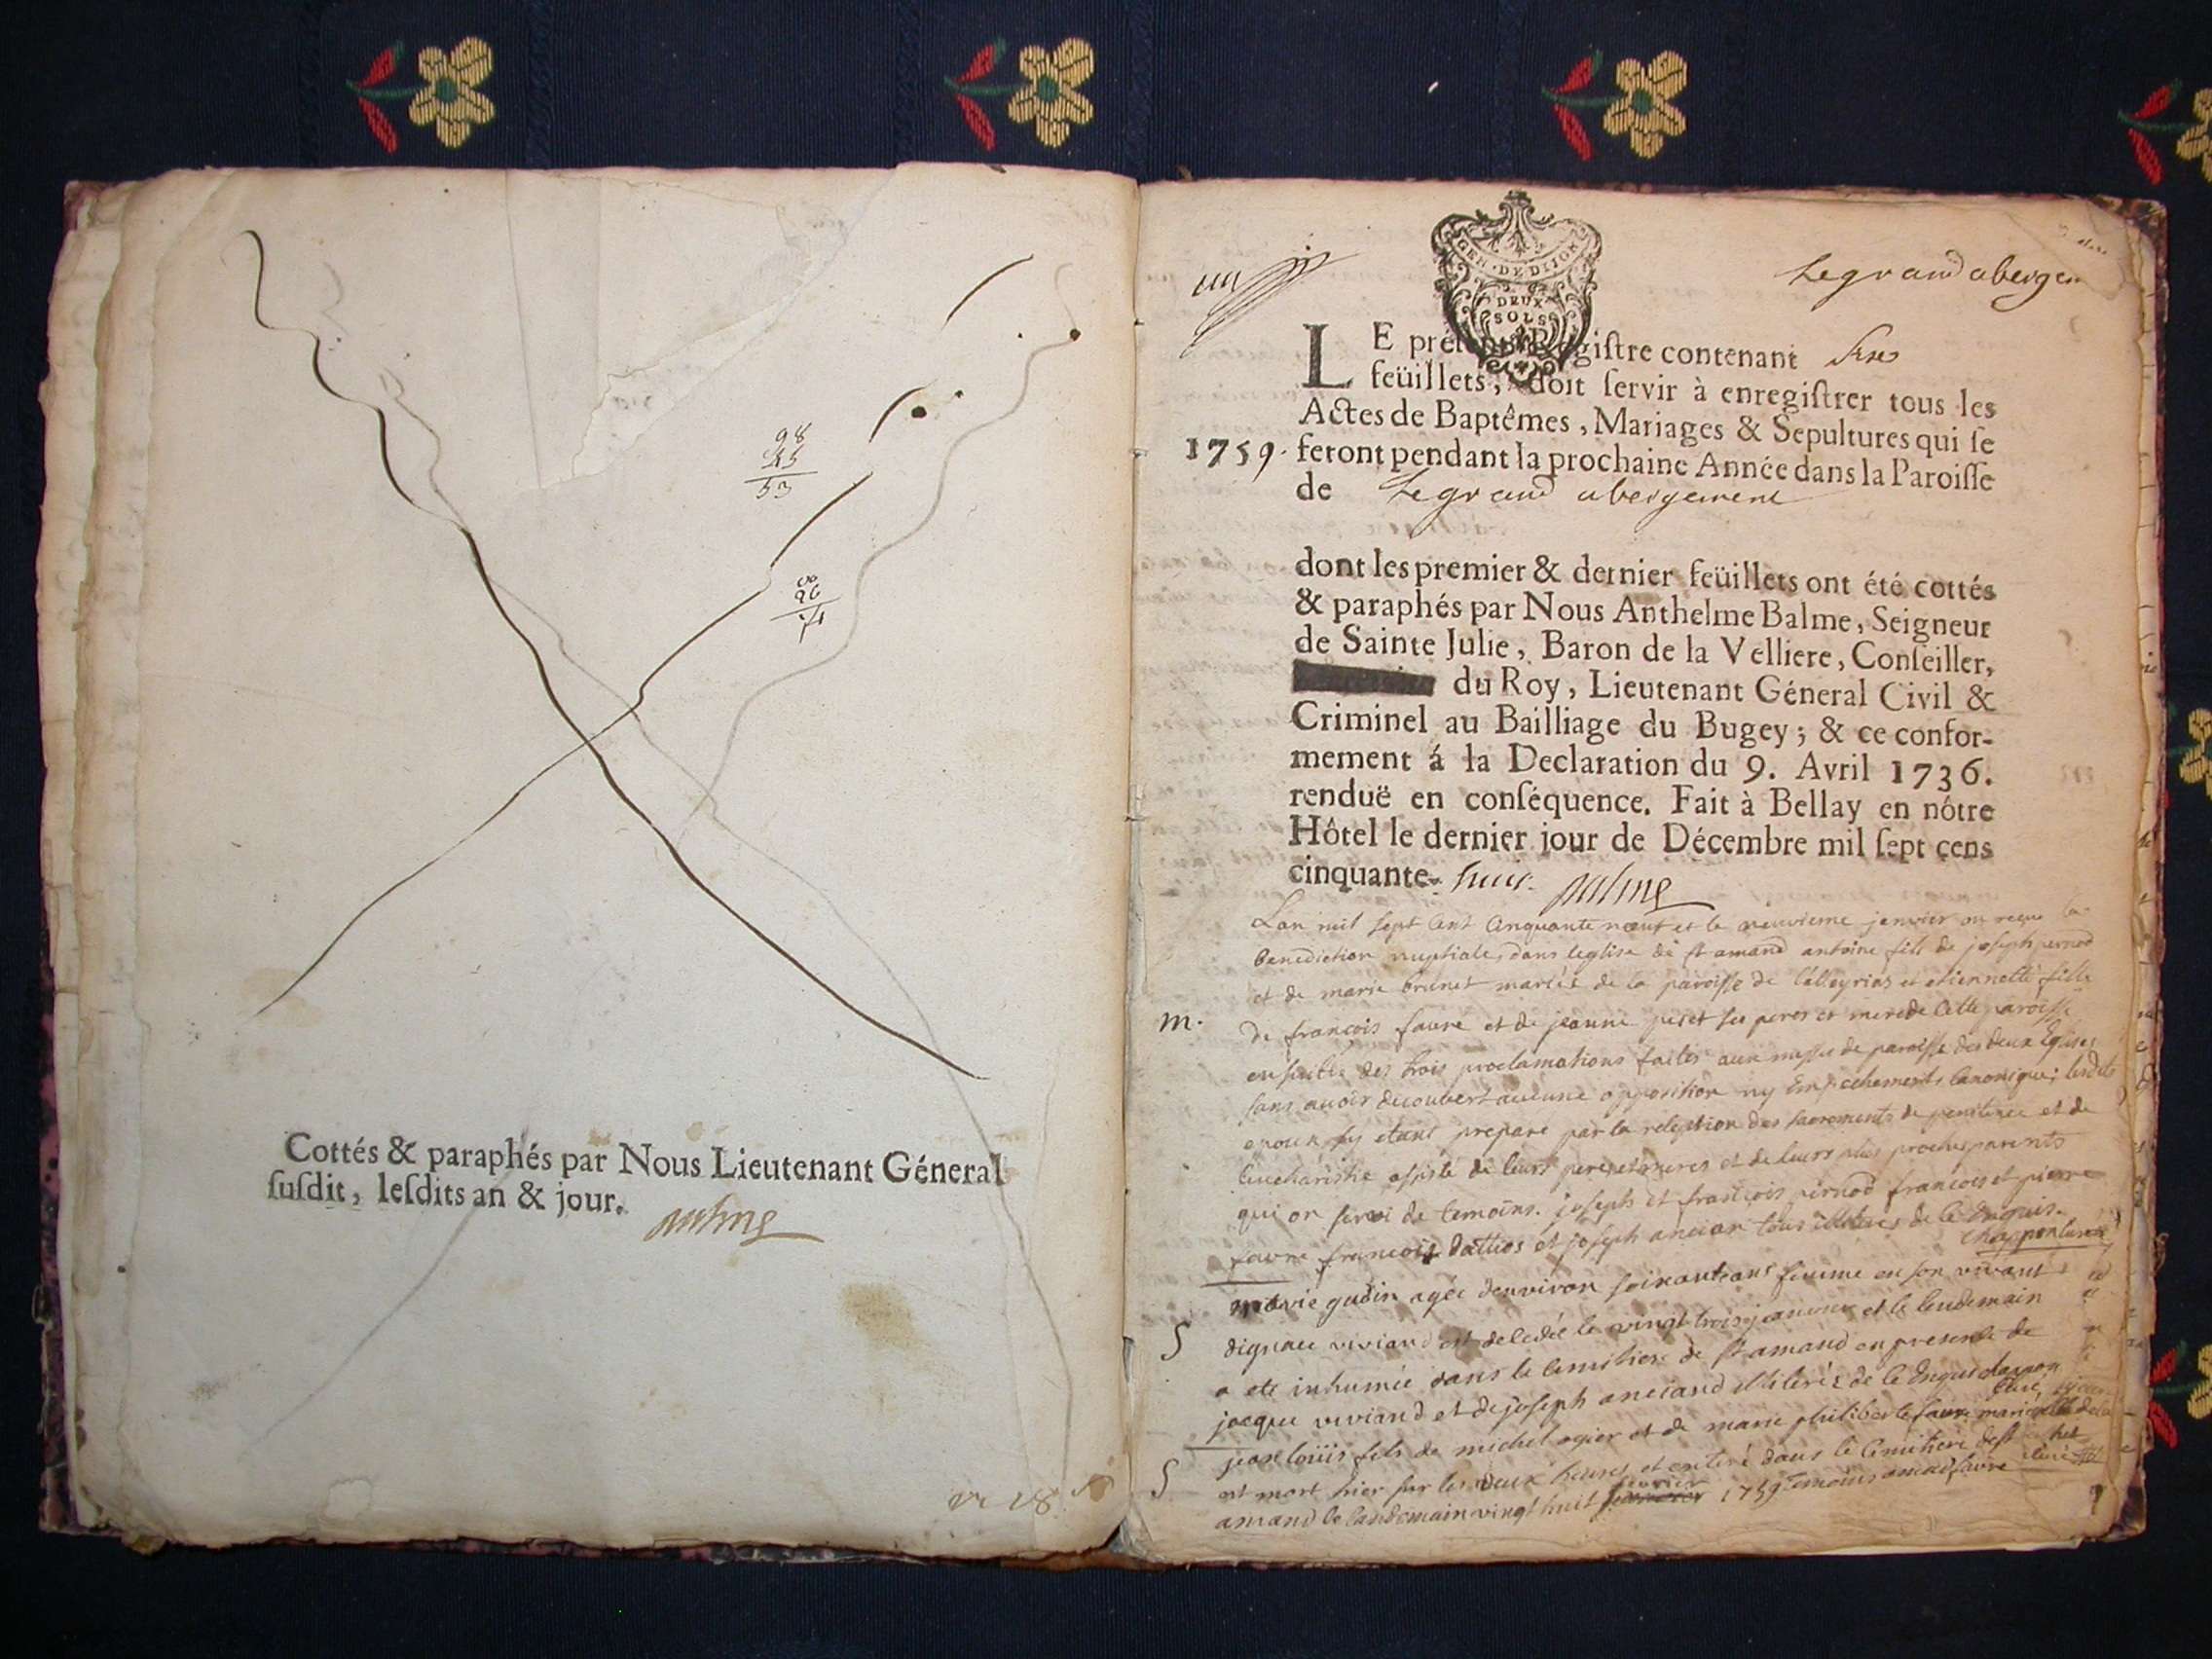 98
45
53
Cottés & paraphés par Nous Lieutenant Géneral
susdit, lesdits an & jour.
Balme
GEN · DE DIJON
DEUX
SOLS
Le grand abergem
LE présent Registre contenant seize
feüillets, doit servir à enregistrer tous les
Actes de Baptêmes, Mariages & Sepultures qui se
1759. feront pendant la prochaine Année dans la Paroisse
de Le grand abergement
dont les premier & dernier feüillets ont été cottés
& paraphés par Nous Anthelme Balme, Seigneur
de Sainte Julie, Baron de la Velliere, Conseiller,
du Roy, Lieutenant Géneral Civil &
Criminel au Bailliage du Bugey; & ce confor-
mement á la Declaration du 9. Avril 1736.
renduë en conséquence. Fait à Bellay en nôtre
Hôtel le dernier jour de Décembre mil sept cens
cinquante- huit. Balme
Lan mil sept cent cinquante neuf et le neuvieme janvier on reçu la
benediction nuptiale dans leglise de st amand antoine fils de joseph pernod
et de marie brunet mariés de la paroisse de et etiennette fille
m. de francois favre et de jeanne ses peres et mere de cette paroisse
ensuitte des trois proclamations faites aux messe de paroisse des deux Eglises
sans avoir decouvert aucune opposition ny Empechements canonique; lesdits
epoux sy etant preparé par la reception des sacrements de penitence et de
leucharistie assisté de leurs peres et meres et de leurs plus proches parents
qui on servi de temoins. joseph et francois pernod francois et pierre
favre francois et joseph ancian tous illiteres de ce Enquis.
marie gudin agée denviron soixante ans femme en son vivant
S dignace viviand est decedée le vingt trois et le lendemain
a eté inhumée dans le cimitiere de st amand en presence de
jacque viviand et de joseph anciand illiterés de ce Enquis
jean loüis fils de michel ogier et de marie philiberte favre mariés
S est mort hier sur les deux heures et enteré dans le cimitiere de st
amand le landemain vingt huit fevrier 1759 temoins amad favre